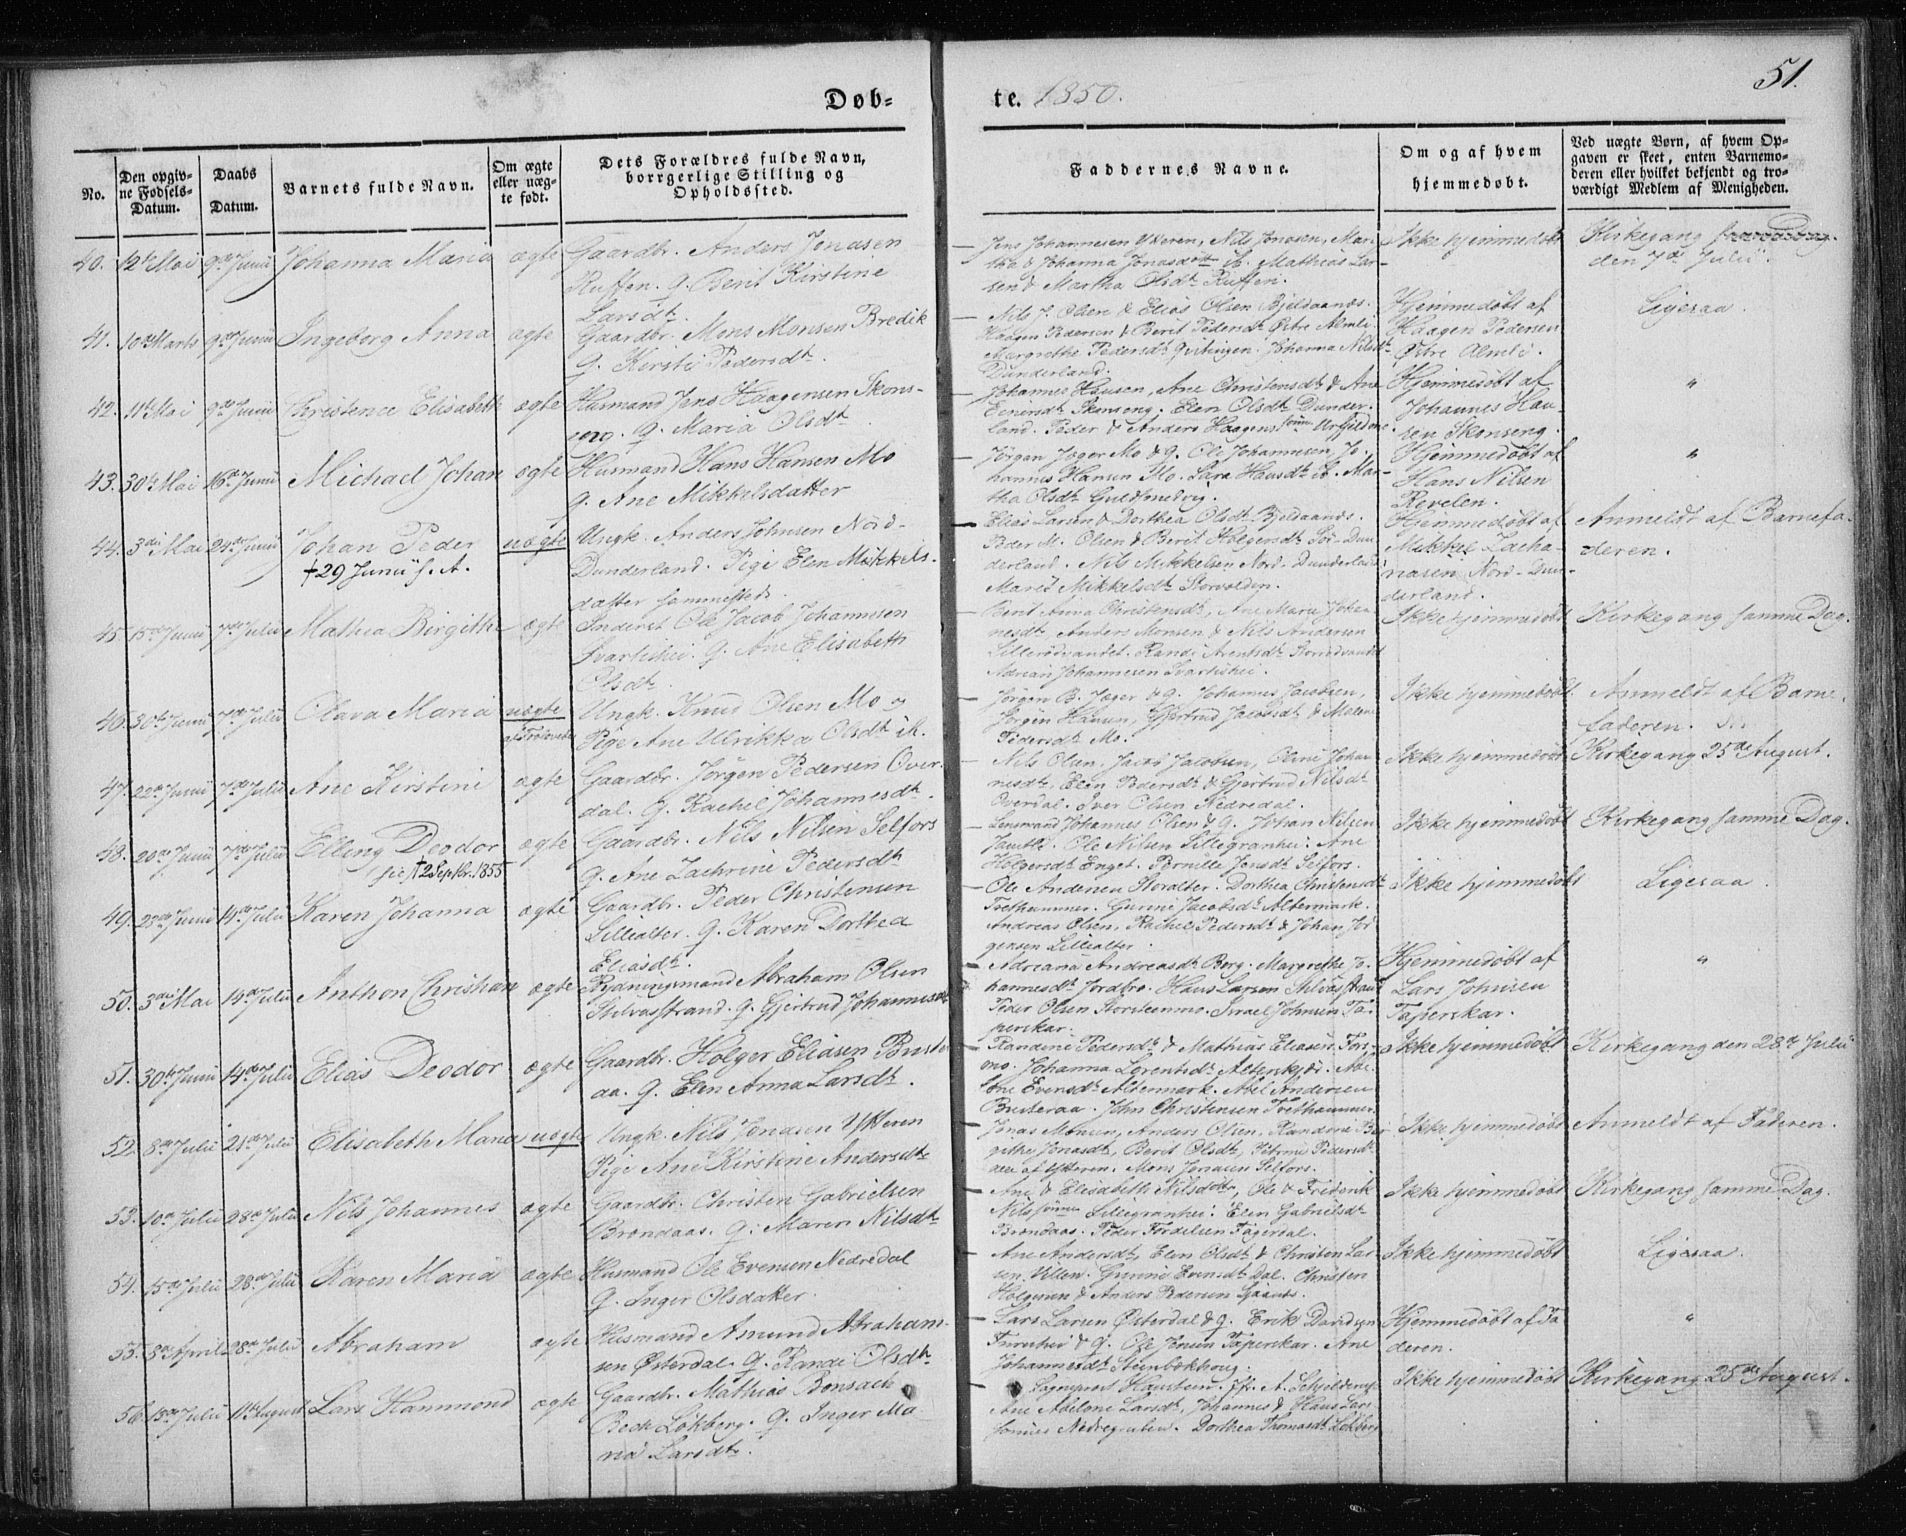 51.
Døb-
te. 1850.
No.
Den opgiv-
ne Fødsels-
Datum.
Daabs
Datum.
Barnets fulde Navn.
Om ægte
eller uæg-
te født.
Dets Forældres fulde Navn,
borrgerlige Stilling og
Opholdssted.
Faddernes Navne.
Om og af hvem
hjemmedøbt.
Ved uægte Børn, af hvem Op-
gaven er skeet, enten Barnemo-
deren eller hvilket bekjendt og tro-
værdigt Medlem af Menigheden.
40. 12te Mai 9de Junii Johanna Maria ægte
Gaardbr. Anders Jonasen
Ruffen. g. Berit Kirstine
Larsdt.
Jens Johannesen Ytteren, Nils Jonasen, Mar-
tha & Johanna Jonasdøttr ib. Mathias Lar-
sen & Martha Olsdt Ruffen.
Ikke hjemmedøbt
Kirkegang
den 7de Julii.
41. 10de Marts 9de Junii Ingeborg Anna ægte
Gaardbr. Mons Monsen Bredik
g. Kersti Pedersdt.
Nils J. Olsen & Elias Olsen Bjeldaanes.
Haagen Pedersen & Berit Pedersdt Østre Almli.
Margrethe Pedersdt Qvitingen. Johanna Nilsdt
Dunderland.
Hjemmedøbt af
Haagen Pedersen
Østre Almli.
Ligesaa.
42. 11te Mai 9de Junii Christence Elisabeth ægte
Husmand Jens Haagensen Skons-
eng. g. Maria Olsdt.
Johannes Hansen, Ane Christensdt & Ane
Einersdt Skonseng. Elen Olsdt Dunder-
land. Peder & Anders Haagens sønner Urfjeldene
Hjemmedøbt af
Johannes Han-
sen Skonseng.
"
43. 30te Mai 16de Junii Michael Johan ægte
Husmand Hans Hansen Mo
g. Ane Mikkelsdatter
Jørgen Jæger Mo & g. Ole Johannesen Jo-
hannes Hansen Mo. Sara Hansdt ib. Mar-
tha Olsdt Guldsmedvig.
Hjemmedøbt af
Hans Nilsen
Revelen.
"
44. 3die Mai 24de Junii Johan Peder
† 29 Junii s. A.
uægte
Ungk. Anders Johnsen Nord-
Dunderland. Pige Elen Mikkels-
datter sammesteds.
Elias Larsen & Dorthea Olsdt Bjeldaanes.
Peder M. Olsen & Berit Holgersdt Sør-Dun-
derland. Nils Mikkelsen Nord-Dunderland
Maria Mikkelsdt Storvolden.
Hjemmedøbt af
Mikkel Zacha-
riasen Nord-Dun-
derland.
Anmeldt af Barnefa-
deren.
45. 15de Junii 7de Julii Mathea Birgithe ægte
Inderst Ole Jacob Johannesen
Svartishei. g. Ane Elisabeth
Olsdt.
Berit Anna Christensdt, Ane Marie Johan-
nesdt Anders Monsen & Nils Andersen
Lillerødvandet. Randi Arentsdt Storrødvandet
Adrian Johannesen Svartishei.
Ikke hjemmedøbt
Kirkegang samme Dag.
46. 30te Junii 7de Julii Olava Maria uægte
af Trolovede
Ungk. Knud Olsen Mo &
Pige Ane Ulrikka Olsdt ib.
Jørgen B. Jæger & g. Johannes Jacobsen,
Jørgen Hansen, Gjertrud Jacobsdt & Malene
Pedersdt Mo.
Ikke hjemmedøbt.
Anmeldt af Barne-
faderen.
47. 22de Junii 7de Julii Ane Kirstine ægte
Gaardbr. Jørgen Pedersen Over-
dal. g. Rachel Johannesdt.
Nils Olsen, Jacob Jacobsen, Oline Johan-
nesdt, Elen Pedersdt & Gjertrud Nilsdt
Overdal. Iver Olsen Nedredal.
Ikke hjemmedøbt
Kirkegang 25de August.
48. 20de Junii 7de Julii Elling Deodor
† 2 Septbr. 1855
ægte
Gaardbr. Nils Nilsen Selfors
g. Ane Zachrine Pedersdt
Lensmand Johannes Olsen & g. Johan Nilsen
Ole Nilsen Lillegranhei. Ane
Holgersdt Enget. Pernille Jonsdt Selfors.
Ikke hjemmedøbt
Kirkegang samme Dag.
49. 23de Junii 14de Julii Karen Johanna ægte
Gaardbr. Peder Christensen
Lillealter. g. Karen Dorthea
Eliasdt.
Ole Andersen Storalter. Dorthea Christensdt
Tvethammer. Gurine Jacobsdt Altermark.
Andreas Olsen, Rachel Pedersdt & Johan Jør-
gensen Lillealter.
Ikke hjemmedøbt
Ligesaa.
50. 3die Mai 14de Julii Anthon Christian ægte
Rydningsmand Abraham Olsen
Stilvasstrand. g. Gjertrud Johannesdt
Adriana Andreasdt Berg. Margrethe Jo-
hannesdt Jordbro. Hans Larsen Stilvasstrand
Peder Olsen Storsteenmo. Israel Johnsen Ta-
perskar.
Hjemmedøbt af
Lars Johnsen
Taperskar.
"
51. 30te Junii 14de Julii Elias Deodor ægte
Gaardbr. Holger Eliasen Buster-
aa. g. Elen Anna Larsdt.
Randine Pedersdt & Mathias Eliasen Fors-
mo. Johanna Lorentsdt Alterskjær. Abe-
lone Evensdt Altermark. Abel Andersen
Busteraa. John Christensen Tvethammer.
Ikke hjemmedøbt
Kirkegang den 28de Julii
52. 8de Julii 21de Julii Elisabeth Maria uægte
Ungk. Nils Jonasen Ytteren
Pige Ane Kirstine Andersdt
Jonas Monsen, Anders Olsen, Randine Bir-
githe Jonasdt, Berit Olsdt, Petrine Pedersdt
alle af Ytteren. Mons Jonasen Selfors.
Ikke hjemmedøbt
Anmeldt af Faderen.
53. 10de Julii 28de Julii Nils Johannes ægte
Gaardbr. Christen Gabrielsen
Brendaas. g. Maren Nilsdt
Ane & Elisabeth Nilsdøtr, Ole & Friderik
Nilssønner Lillegranhei. Elen Gabrielsdt
Brendaas. Peder Fordelsen Fagerdal.
Ikke hjemmedøbt
Kirkegang samme Dag.
54. 15de Julii 28de Julii Karen Maria ægte
Husmand Ole Evensen Nedredal
g. Inger Olsdatter.
Ane Andersdt, Elen Olsdt & Christen Lar-
sen Villen. Gurine Evensdt Dal. Christen
Holgersen & Anders Pedersen
Ikke hjemmedøbt
Ligesaa.
55. 8de April 28de Julii Abraham ægte
Husmand Amund Abraham-
sen Østerdal. g. Randi Olsdt.
Lars Larsen Østerdal & g. Erik Davidsen
Furuhei & g. Ole Jensen Taperskar. Ane
Johannesdt Steinbækhoug.
Hjemmedøbt af Fa-
deren.
"
56. 13de Julii 11te August Lars Hammond ægte
Gaardbr. Mathias Bonsach
Bech Løkberg. g. Inger Ma-
ria Larsdt.
Sogneprest Haustein. Jfr. A. Schjelderup
Ane Abelone Larsdt, Johannes & Hans Lars-
sønner Nedregrulen. Dorthea Thomasdt Løkberg
Ikke hjemmedøbt
Kirkegang 25de August.